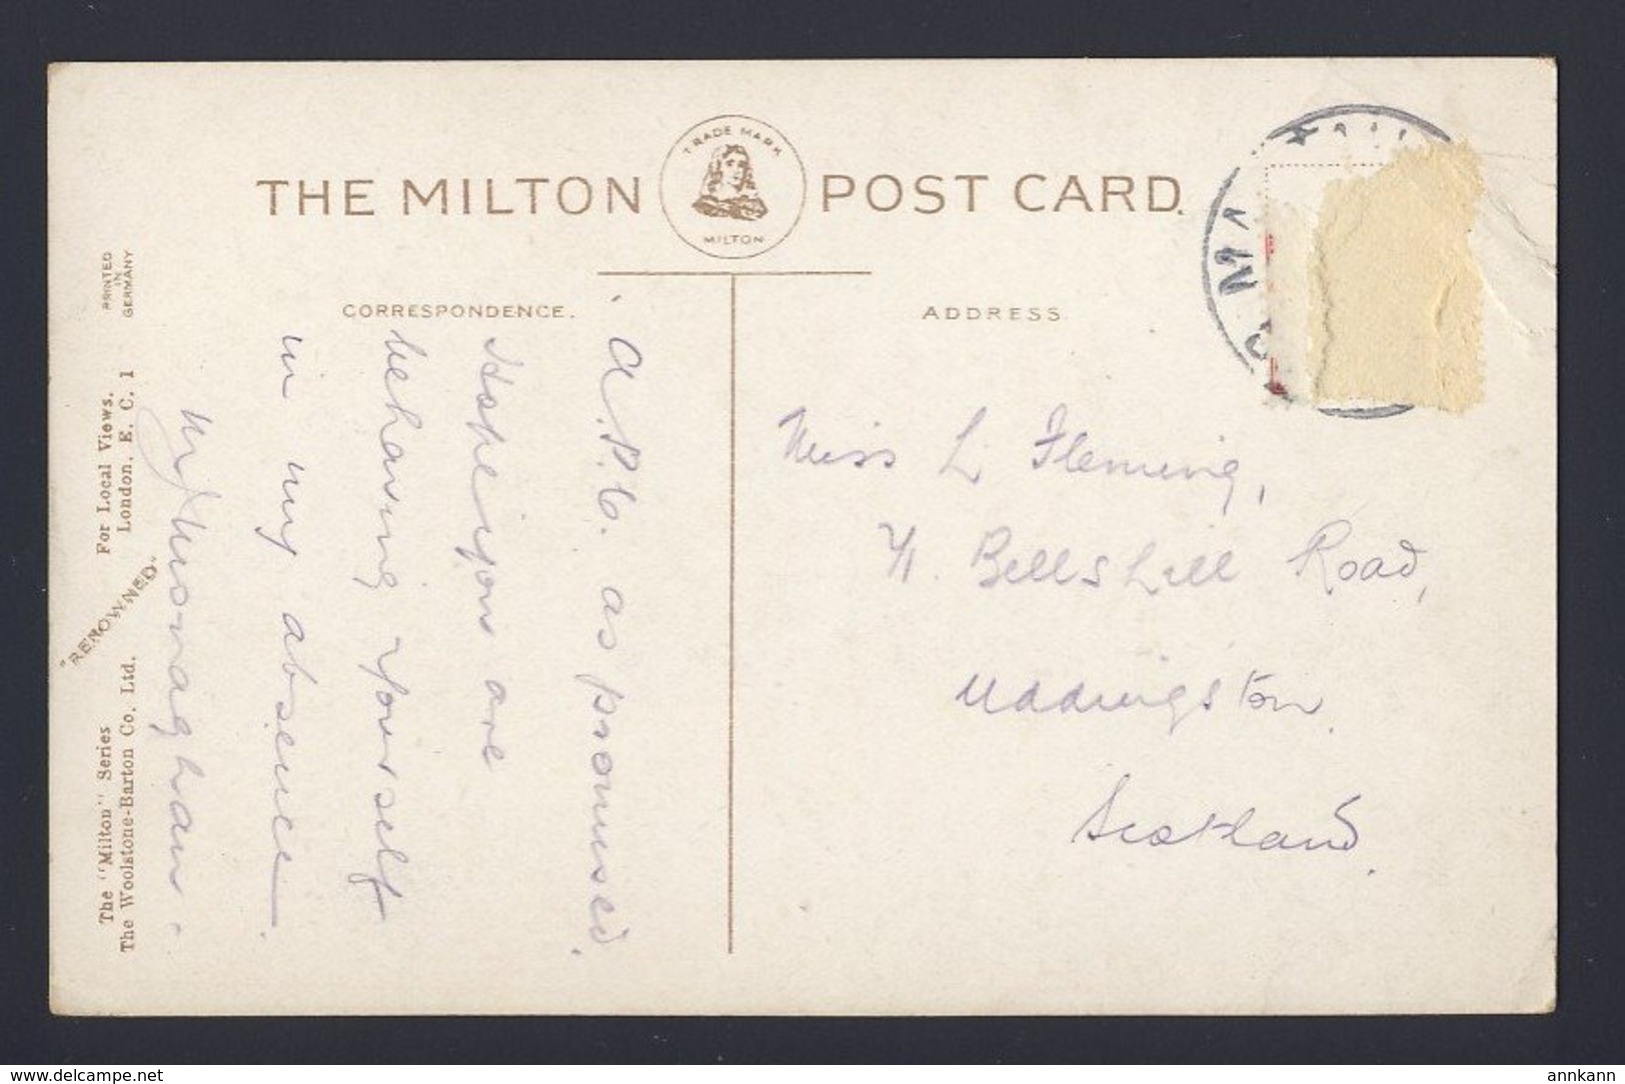 THE MILTON POST CARD.
TRADE MARK
MILTON
CORRESPONDENCE.
ADDRESS
PRINTED
IN
GERMANY
For Local Views.
London, E. C. 1
"RENOWNED"
The "Milton" Series
The Woolstone-Barton Co. Ltd.
A.P.C. as promised.
Hope you are
behaving yourself
in my absence.
Monaghan.
Miss L Fleming,
Bellshill Road,
Uddingston.
Scotland.
www.delcampe.net
annkann